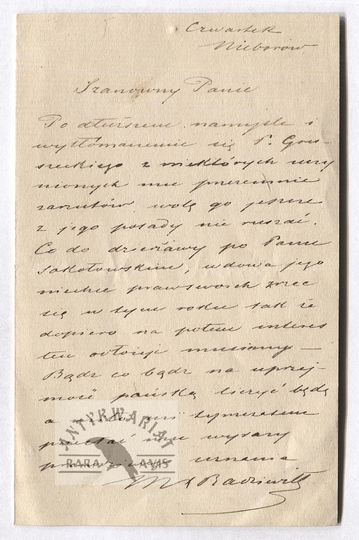 Czwartek
Nieborów
Szanowny Panie
Po dłuższem namyśle i
wytłomaczeniu się P. Gro-
szeckiego z niektórych uczy
nionych mu przezemnie
zarzutów wolę go jeszcze
z jego posady nie ruszać.
Co do dzierżawy po Panu
Sokołowskim, wdowa jego
niechce praw swoich zrzec
się w tym roku tak że
dopiero na potem interes
ten odłożyć musimy –
Bądź co bądź na uprzej
mość pańską liczyć będę
a mi tymczasem
przesłać wyrazy
uznania
M Radziwiłł
ANTYKWARIAT
RARA AVIS